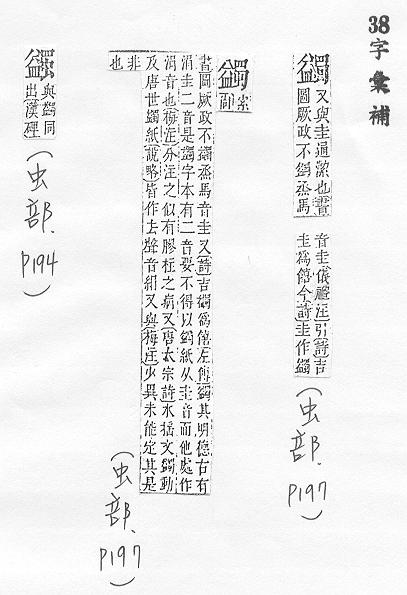 38字彙補
蠲 又與圭通潔也書
圖厥政不蠲烝馬
音圭儀禮注引詩吉
圭爲饎今詩圭作蠲
(虫部. P197)
蠲
書圖厥政不蠲烝馬音圭又詩吉蠲爲饎左傳蠲其明德古有
涓圭二音是蠲字本有二音要不得以蠲紙从圭音而他處作
涓音也梅注分注之似有膠柱之病又唐太宗詩水搖文蠲動
及唐世蠲紙說略皆作去聲音絹又與梅注少異未能定其是
非也
(虫部. P197)
與蠲同
出漢碑
(虫部. P194)